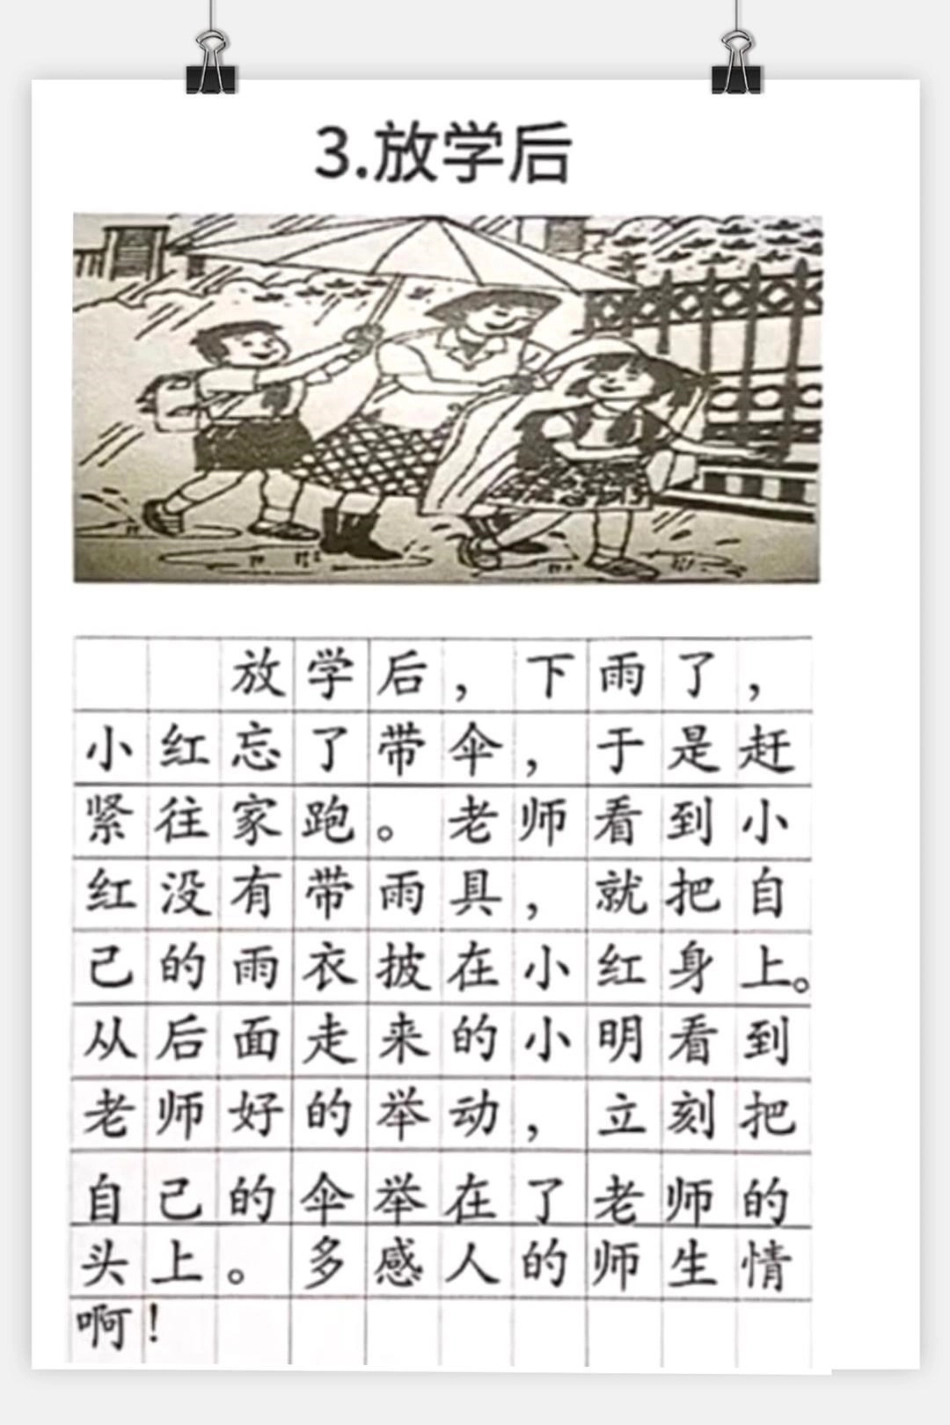 3.放学后
放学后，下雨了，
小红忘了带伞，于是赶
紧往家跑。老师看到小
红没有带雨具，就把自
己的雨衣披在小红身上。
从后面走来的小明看到
老师好的举动，立刻把
自己的伞举在了老师的
头上。多感人的师生情
啊！